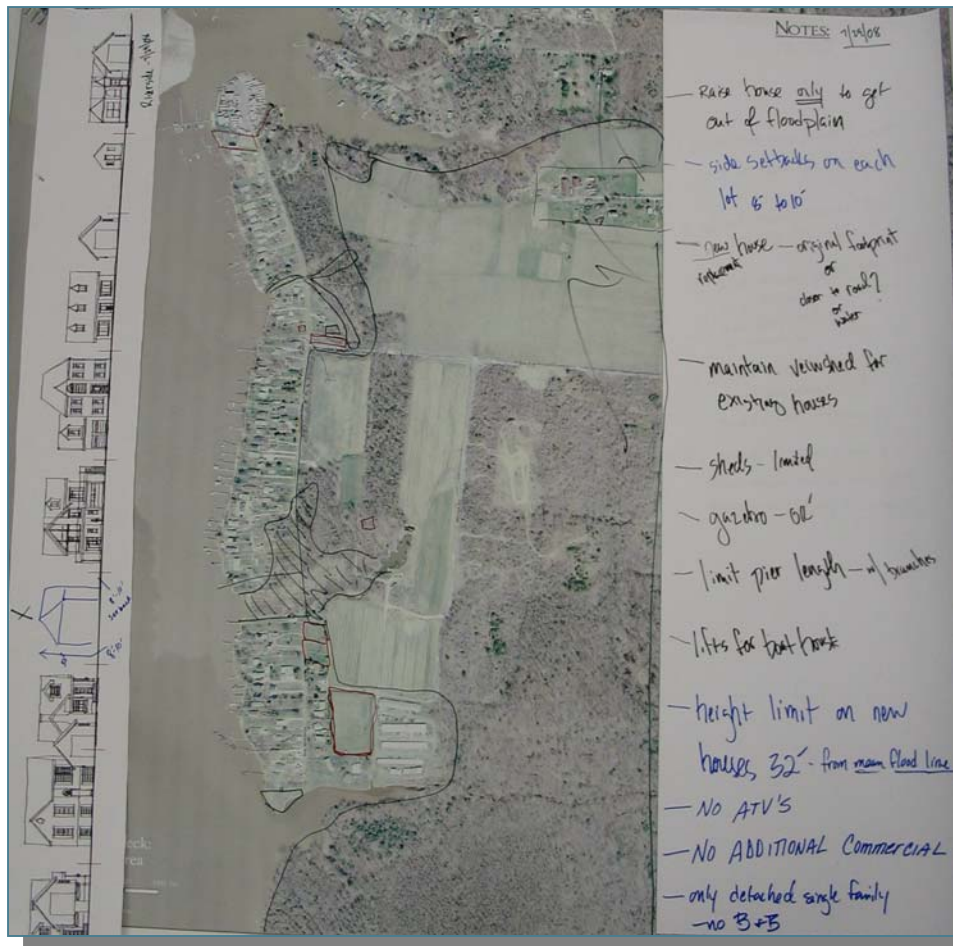 NOTES: 7/29/08
- Raise house only to get
out of floodplain
- side setbacks on each
lot 8' to 10'
- new house - original footprint
replacement or
closer to road?
or
water
- maintain veiwshed for
existing houses
- sheds - limited
- gazebo - OK
- limit pier length - w/ branches
- lifts for boat house
- height limit on new
houses 32' - from mean flood line
- NO ATV'S
- NO ADDITIONAL COMMERCIAL
- only detached single family
- no B+B
Riverside
8'-10'
8'-10'
eck:
rea